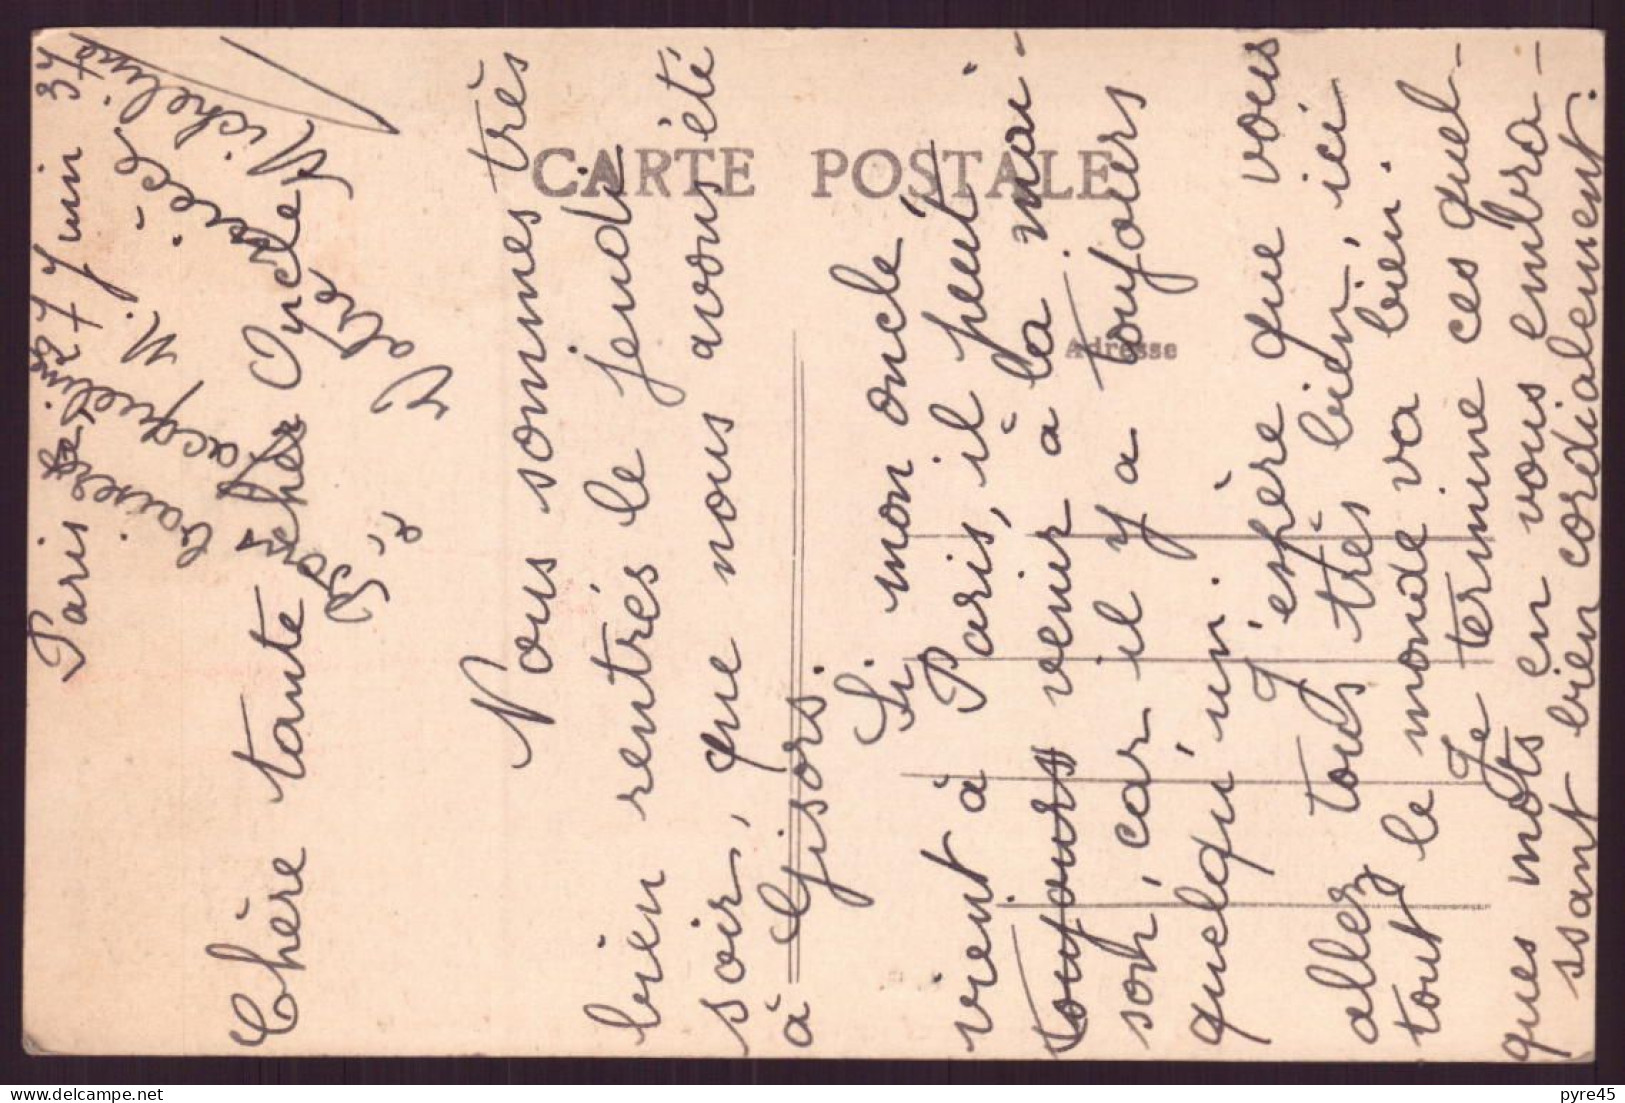 Paris 27 Juin 37
Chère tante, cher Oncle,
Nous sommes très
bien rentrés le jeudi
soir, que nous avons été
à Gisors.
Si mon oncle
vient à Paris, il peut
toujours venir à la mai-
son, car il y a toujours
quelqu'un.
J'espère que vous
allez tous très bien, ici
tout le monde va bien.
Je termine ces quel-
ques mots en vous embra-
ssant bien cordialement.
Votre nièce
Micheline
Bons
baisers
de
Jacqueline
M.
CARTE POSTALE
Adresse
pyre45